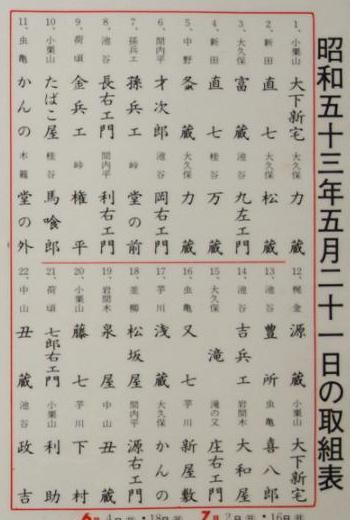 昭和五十三年五月二十一日の取組表
1、小栗山 大下新宅 大久保 力蔵
2、新田 直七 大久保 松蔵
3、大久保 富蔵 池谷 九左エ門
4、新田 直七 桂谷 万蔵
5、中野 粂蔵 大久保 力蔵
6、間内平 才次郎 池谷 岡右エ門
7、孫兵エ 孫兵エ 峠 堂の前
8、池谷 長右エ門 間内平 利右エ門
9、荷頃 金兵エ 峠 権平
10、小栗山 たばこ屋 桂谷 馬喰郎
11、虫亀 かんの 木籠 堂の外
12、梶金 源蔵 小栗山 大下新宅
13、池谷 豊所 虫亀 喜八郎
14、池谷 吉兵エ 岩間木 大和屋
15、大久保 滝 滝の又 庄右エ門
16、虫亀 又七 芋川 新屋敷
17、芋川 浅蔵 虫亀 かんの
18、韮柳 松坂屋 間内平 源右エ門
19、岩間木 泉屋 中山 丑蔵
20、小栗山 藤七 芋川 下村
21、荷頃 七郎右エ門 小栗山 利助
22、中山 丑蔵 池谷 政吉
6月 4日・18日 7月 2日・16日